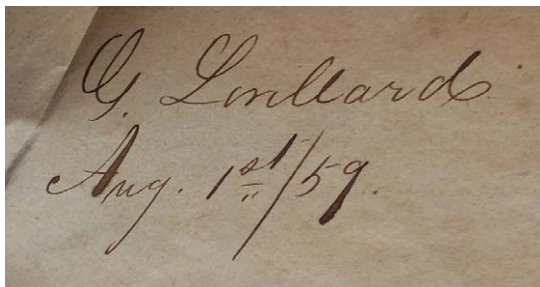 G. Lorillard
Aug. 1st/59.